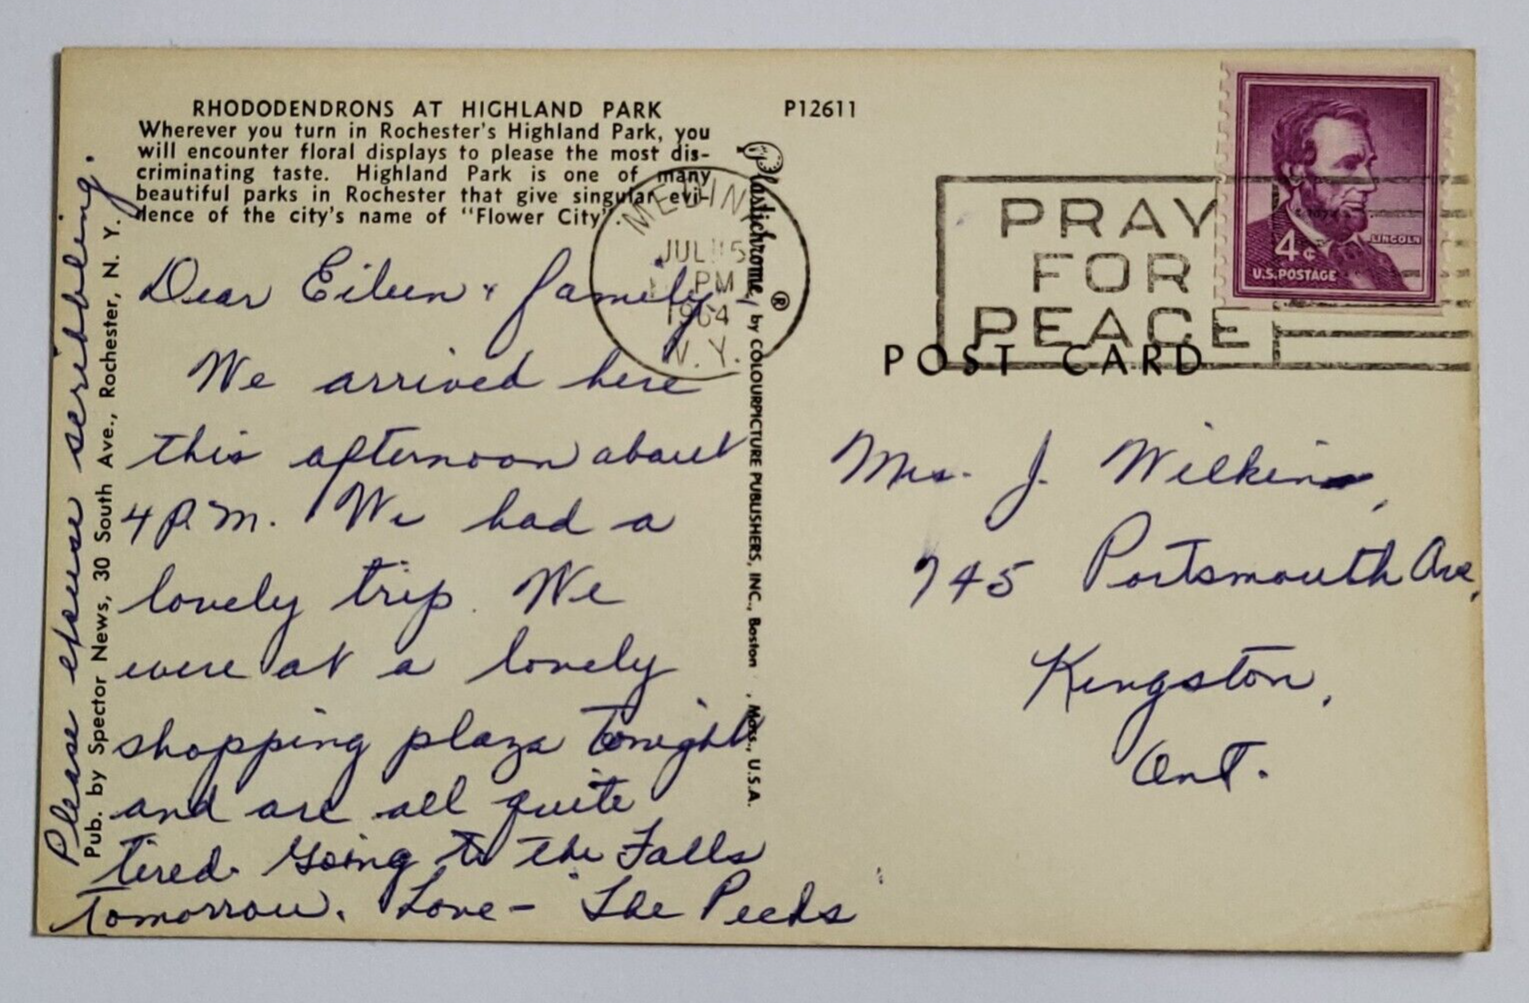 RHODODENDRONS AT HIGHLAND PARK
Wherever you turn in Rochester's Highland Park, you
will encounter floral displays to please the most dis-
criminating taste. Highland Park is one of many
beautiful parks in Rochester that give singular evi-
dence of the city's name of "Flower City".
P12611
Dear Eileen & family,
We arrived here
this afternoon about
4 P.M. We had a
lovely trip. We
were at a lovely
shopping plaza tonight
and are all quite
tired. Going to the Falls
tomorrow. Love - The Pecks
Please excuse scribbling.
Pub. by Spector News, 30 South Ave., Rochester, N. Y.
Plastichrome® by COLOURPICTURE PUBLISHERS, INC., Boston, Mass., U.S.A.
JUL 15
PM
1964
N.Y.
PRAY
FOR
PEACE
4¢
LINCOLN
U.S. POSTAGE
POST CARD
Mrs. J. Wilkins,
745 Portsmouth Ave,
Kingston,
Ont.